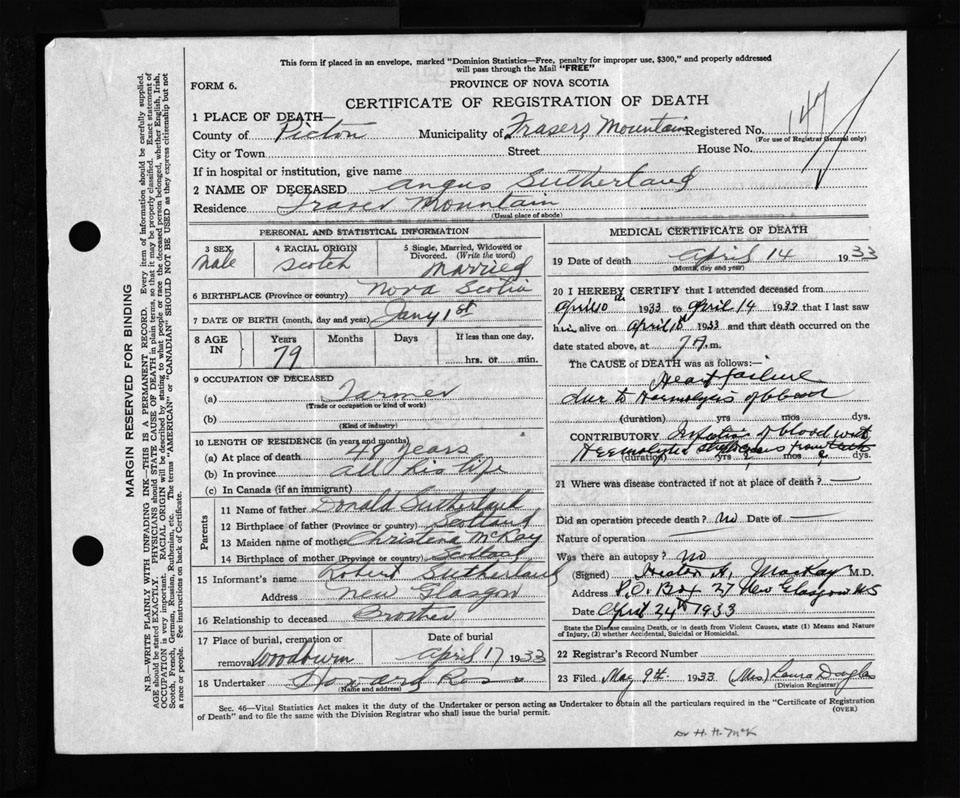 This form if placed in an envelope, marked "Dominion Statistics—Free, penalty for improper use, $300," and properly addressed
will pass through the Mail "FREE"
FORM 6.
PROVINCE OF NOVA SCOTIA
CERTIFICATE OF REGISTRATION OF DEATH
1 PLACE OF DEATH—
County of Pictou Municipality of Frasers Mountain Registered No. 147
(For use of Registrar General only)
City or Town Street House No.
If in hospital or institution, give name
2 NAME OF DECEASED Angus Sutherland
Residence Fraser Mountain
(Usual place of abode)
PERSONAL AND STATISTICAL INFORMATION
3 SEX Male
4 RACIAL ORIGIN Scotch
5 Single, Married, Widowed or Divorced. (Write the word) Married
6 BIRTHPLACE (Province or country) Nova Scotia
7 DATE OF BIRTH (month, day and year) Jany 1st
8 AGE IN Years 79 Months Days If less than one day, hrs. or min.
9 OCCUPATION OF DECEASED
(a) Farmer
(Trade or occupation or kind of work)
(b)
(Kind of industry)
10 LENGTH OF RESIDENCE (in years and months)
(a) At place of death 48 years
(b) In province all his life
(c) In Canada (if an immigrant)
Parents
11 Name of father Donald Sutherland
12 Birthplace of father (Province or country) Scotland
13 Maiden name of mother Christena McKay
14 Birthplace of mother (Province or country) Scotland
15 Informant's name Robert Sutherland
Address New Glasgow
16 Relationship to deceased Brother
17 Place of burial, cremation or removal Woodburn Date of burial April 17 1933
18 Undertaker Howard Ross
(Name and address)
MEDICAL CERTIFICATE OF DEATH
19 Date of death April 14 1933
(Month, day and year)
20 I HEREBY CERTIFY that I attended deceased from
April 10th 1933 to April 14 1933 that I last saw
him alive on April 1 1933 and that death occurred on the
date stated above, at 7 A. m.
The CAUSE of DEATH was as follows:—
Heart failure
due to Haemolysis of blood
(duration) yrs mos dys.
CONTRIBUTORY Infection of blood with
(duration) yrs mos dys
21 Where was disease contracted if not at place of death? —
Did an operation precede death? no Date of —
Nature of operation —
Was there an autopsy? no
(Signed) Hester A. MacKay M.D.
Address P.O. Box 27 New Glasgow NS
Date April 24th 1933
State the Disease causing Death, or in death from Violent Causes, state (1) Means and Nature
of Injury, (2) whether Accidental, Suicidal or Homicidal.
22 Registrar's Record Number
23 Filed May 9th 1933 (Mrs) Laura Douglas
(Division Registrar)
Sec. 46—Vital Statistics Act makes it duty of the Undertaker or person acting as Undertaker to obtain all the particulars required in the "Certificate of Registration
of Death" and to file the same with the Division Registrar who shall issue the burial permit.
(OVER)
Dr H. H. McK
MARGIN RESERVED FOR BINDING
N.B.—WRITE PLAINLY WITH UNFADING INK—THIS IS A PERMANENT RECORD. Every item of information should be carefully supplied.
AGE should be stated EXACTLY. PHYSICIANS should STATE CAUSE OF DEATH in plain terms, so that it may be properly classified. Exact statement of
OCCUPATION is very important. RACIAL ORIGIN will be described by stating to what people or race the deceased person belonged, whether English, Irish,
Scotch, French, German, Russian, Ruthenian, etc. The terms "AMERICAN" or "CANADIAN" SHOULD NOT BE USED as they express citizenship but not
a race or people. See instructions on back of Certificate.